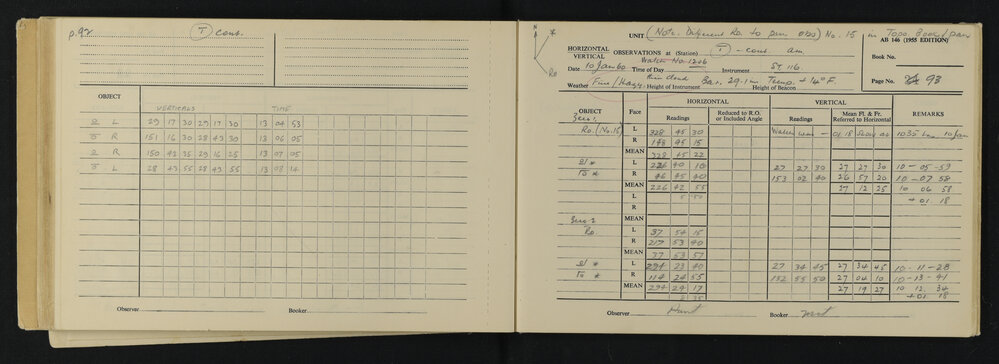 p. 92
T cont.
OBJECT
VERTICALS TIME
L 29 17 30 29 17 30 13 04 53
R 151 16 30 28 43 30 13 06 05
R 150 43 35 29 16 25 13 07 05
L 28 43 55 28 43 55 13 08 14
Observer Booker
N
Ro
UNIT (Note: Different Ro. to prev. obs) No. 15 in Topo Book/
AB 146 (1955 EDITION)
HORIZONTAL
VERTICAL
OBSERVATIONS at (Station) T - cont. am
Book No.
Watch No. 1206
Date 10 Jan 60 Time of Day Instrument ST 116.
Page No. 93
Thin Cloud Bar. 29.1 in Temp. + 14° F.
Weather Fine/Hazy Height of Instrument Height of Beacon
OBJECT Face HORIZONTAL VERTICAL REMARKS
Readings Reduced to R.O. or Included Angle Readings Mean Fl. & Fr. Referred to Horizontal
Ro. (No. 15) L 328 45 30 Watch was - 01 18 Slow at 1035 10 Jan
R 148 45 15
MEAN 328 45 22
* L 226 40 10 27 27 30 27 27 30 10 - 05 - 59
* R 46 45 40 153 02 40 26 57 20 10 - 07 58
MEAN 226 42 55 27 12 25 10 06 58
L 5 50 + 01 18
R
MEAN
Ro. L 37 54 15
R 217 53 40
MEAN 37 53 57
* L 294 23 40 27 34 45 27 34 45 10 - 11 - 28
* R 114 24 55 152 55 50 27 04 10 10 - 13 - 41
MEAN 294 24 17 27 19 27 10 12 34
+ 01 18
Observer Hunt Booker